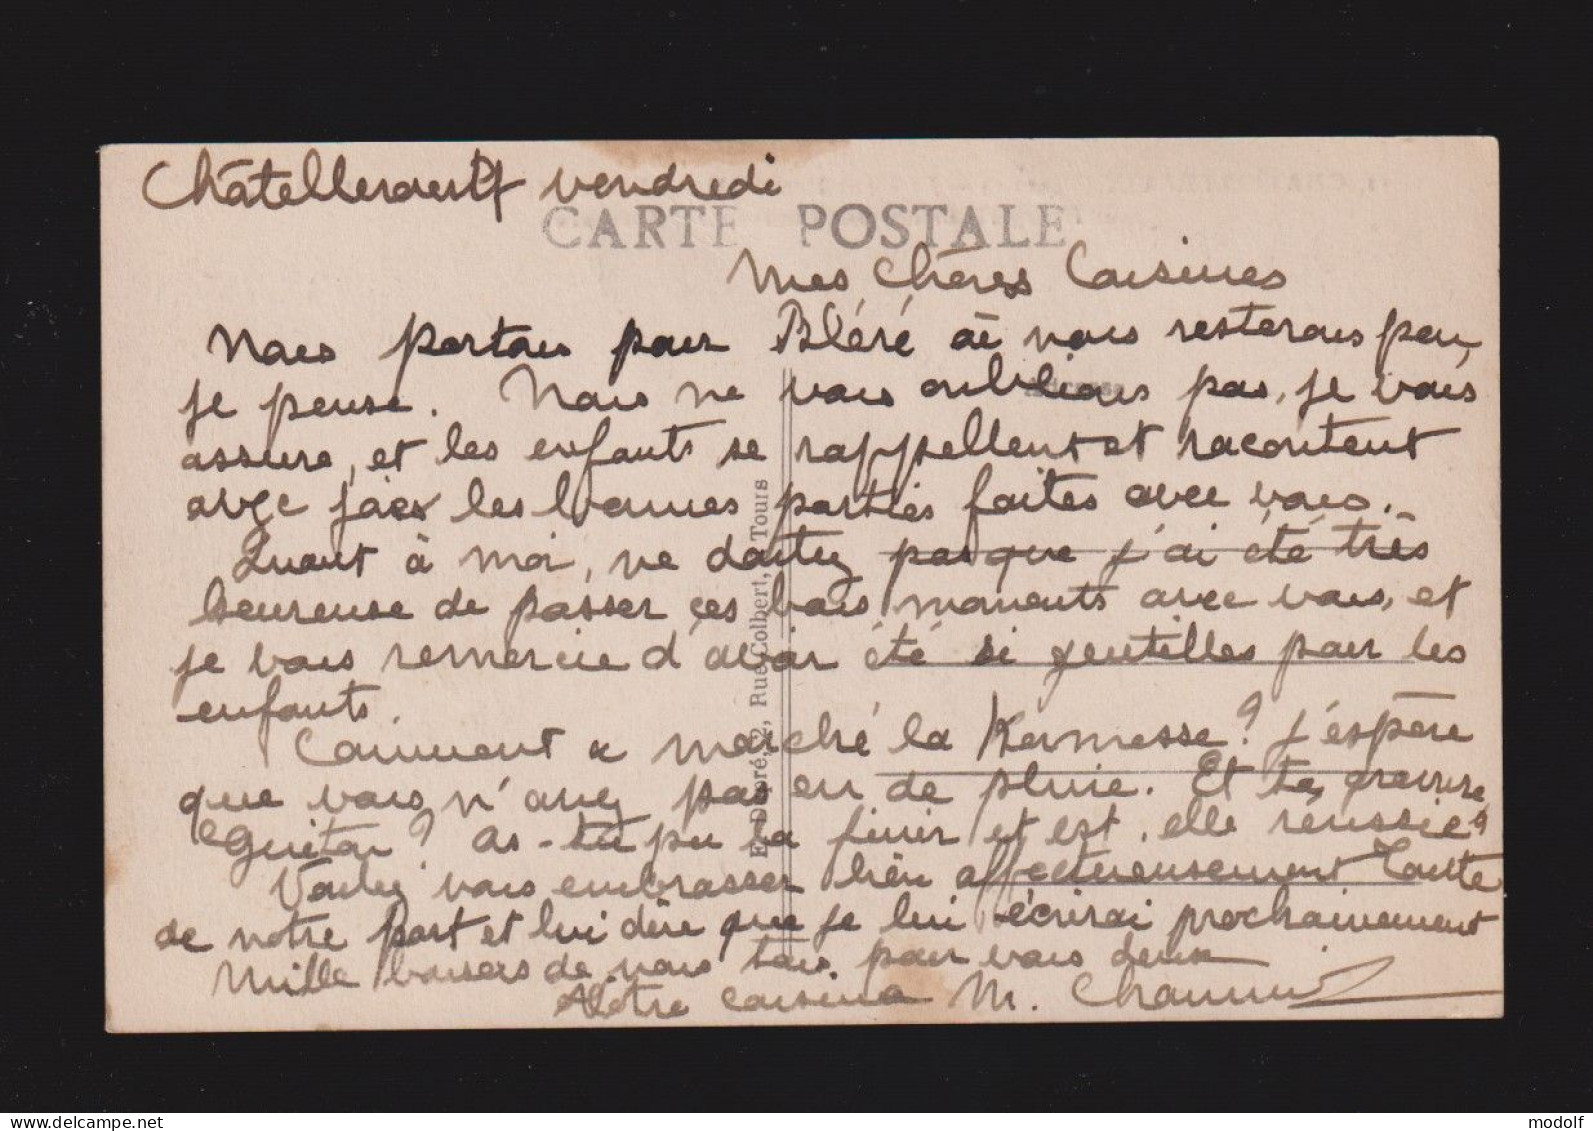 Châtellerault vendredi
CARTE POSTALE
Mes Chères Cousines
Nous partons pour Bléré où nous resterons peu,
je pense. Nous ne vous oublions pas, je vous
assure, et les enfants se rappellent et racontent
avec joies les bonnes parties faites avec vous.
Quant à moi, ne doutez pas que j'ai été très
heureuse de passer ces bons moments avec vous, et
je vous remercie d'avoir été si gentilles pour les
enfants.
Comment a marché la Kermesse? J'espère
que vous n'avez pas eu de pluie. Et ta gravure,
? as-tu pu la finir et est-elle réussie?
Voulez vous embrasser bien affectueusement Tante
de notre part et lui dire que je lui écrirai prochainement
Mille baisers de nous tous pour vous deux
Votre cousine M.
E. Doré, 2, Rue Colbert, Tours
delcampe.net
modolf